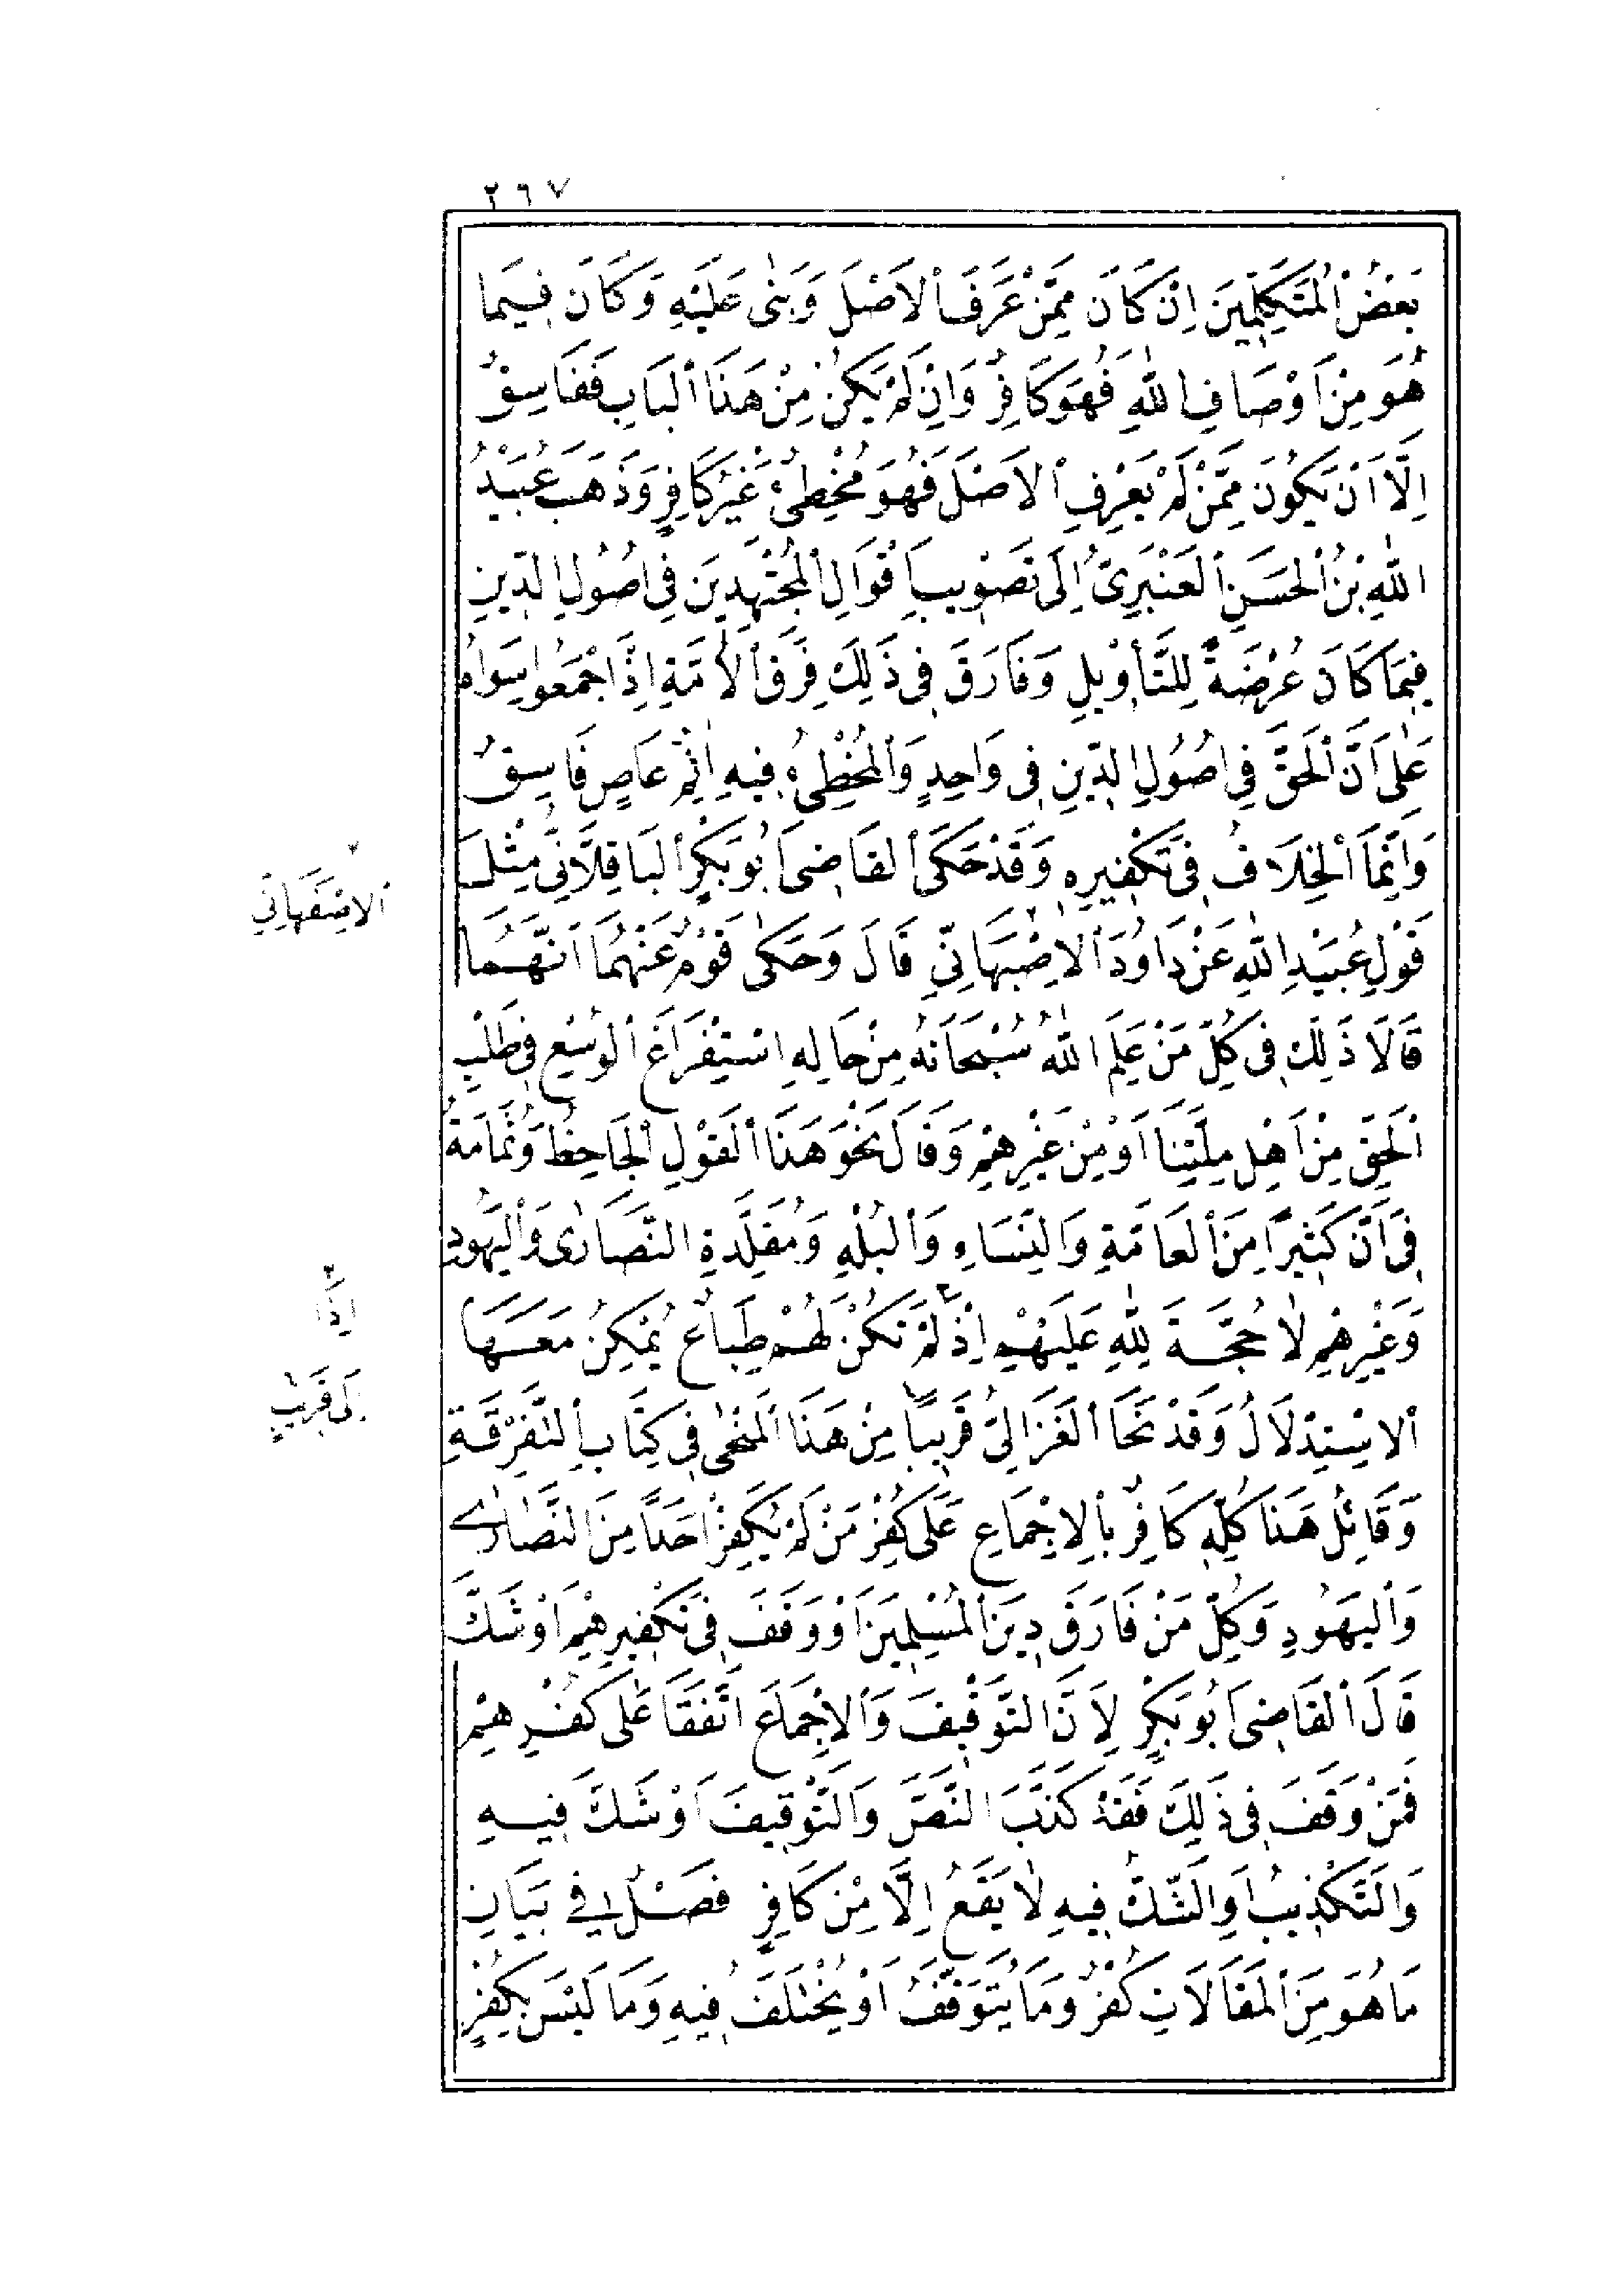 ٢٦٧
بَعْضُ الْمُتَكَلِّمِينَ اِنْ كَانَ مِمَّنْ عَرَفَ الْاَصْلَ وَبَنٰى عَلَيْهِ وَكَانَ فِيمَا
هُوَ مِنْ اَوْصَافِ اللّٰهِ فَهُوَ كَافِرٌ وَاِنْ لَمْ يَكُنْ مِنْ هَذَا الْبَابِ فَفَاسِقٌ
اِلَّا اَنْ يَكُونَ مِمَّنْ لَمْ يَعْرِفِ الْاَصْلَ فَهُوَ مُخْطِئٌ غَيْرُ كَافِرٍ وَذَهَبَ عُبَيْدُ
اللّٰهِ بْنُ الْحَسَنِ الْعَنْبَرِىُّ اِلَى تَصْوِيبِ اَقْوَالِ الْمُجْتَهِدِينَ فِى اُصُولِ الدِّينِ
فِيمَا كَانَ عُرْضَةً لِلتَّأْوِيلِ وَفَارَقَ فِى ذَلِكَ فِرَقَ الْاُمَّةِ اِذْ اَجْمَعُوا سِوَاهُ
عَلَى اَنَّ الْحَقَّ فِى اُصُولِ الدِّينِ فِى وَاحِدٍ وَالْمُخْطِئُ فِيهِ اٰثِمٌ عَاصٍ فَاسِقٌ
وَاِنَّمَا الْخِلَافُ فِى تَكْفِيرِهِ وَقَدْ حَكَى الْقَاضِى اَبُو بَكْرٍ الْبَاقِلَّانِىُّ مِثْلَ
قَوْلِ عُبَيْدِ اللّٰهِ عَنْ دَاوُدَ الْاِصْبَهَانِىِّ قَالَ وَحَكٰى قَوْمٌ عَنْهُمَا اَنَّهُمَا
قَالَا ذَلِكَ فِى كُلِّ مَنْ عَلِمَ اللّٰهُ سُبْحَانَهُ مِنْ حَالِهِ اسْتِفْرَاغَ الْوُسْعِ فِى طَلَبِ
الْحَقِّ مِنْ اَهْلِ مِلَّتِنَا اَوْ مِنْ غَيْرِهِمْ وَقَالَ نَحْوَ هَذَا الْقَوْلِ الْجَاحِظُ وَثُمَامَةُ
فِى اَنَّ كَثِيرًا مِنَ الْعَامَّةِ وَالنِّسَاءِ وَالْبُلْهِ وَمُقَلِّدَةِ النَّصَارٰى وَالْيَهُودِ
وَغَيْرِهِمْ لَا حُجَّةَ لِلّٰهِ عَلَيْهِمْ اِذْ لَمْ تَكُنْ لَهُمْ طِبَاعٌ يُمْكِنُ مَعَهَا
الْاِسْتِدْلَالُ وَقَدْ نَحَا الْغَزَالِىُّ قَرِيبًا مِنْ هَذَا الْمَنْحٰى فِى كِتَابِ التَّفْرِقَةِ
وَقَائِلُ هَذَا كُلِّهِ كَافِرٌ بِالْاِجْمَاعِ عَلَى كُفْرِ مَنْ لَمْ يُكَفِّرْ اَحَدًا مِنَ النَّصَارٰى
وَالْيَهُودِ وَكُلِّ مَنْ فَارَقَ دِينَ الْمُسْلِمِينَ اَوْ وَقَفَ فِى تَكْفِيرِهِمْ اَوْ شَكَّ
قَالَ الْقَاضِى اَبُو بَكْرٍ لِاَنَّ التَّوْقِيفَ وَالْاِجْمَاعَ اتَّفَقَا عَلَى كُفْرِهِمْ
فَمَنْ وَقَفَ فِى ذَلِكَ فَقَدْ كَذَّبَ النَّصَّ وَالتَّوْقِيفَ اَوْ شَكَّ فِيهِ
وَالتَّكْذِيبُ اَوِ الشَّكُّ فِيهِ لَا يَقَعُ اِلَّا مِنْ كَافِرٍ فَصْلٌ فِى بَيَانِ
مَا هُوَ مِنَ الْمَقَالَاتِ كُفْرٌ وَمَا يُتَوَقَّفُ اَوْ يُخْتَلَفُ فِيهِ وَمَا لَيْسَ بِكُفْرٍ
٢
الْاِصْفَهَانِيّ
٣
اِذَا
٦
اِلَى قَرِيبٍ